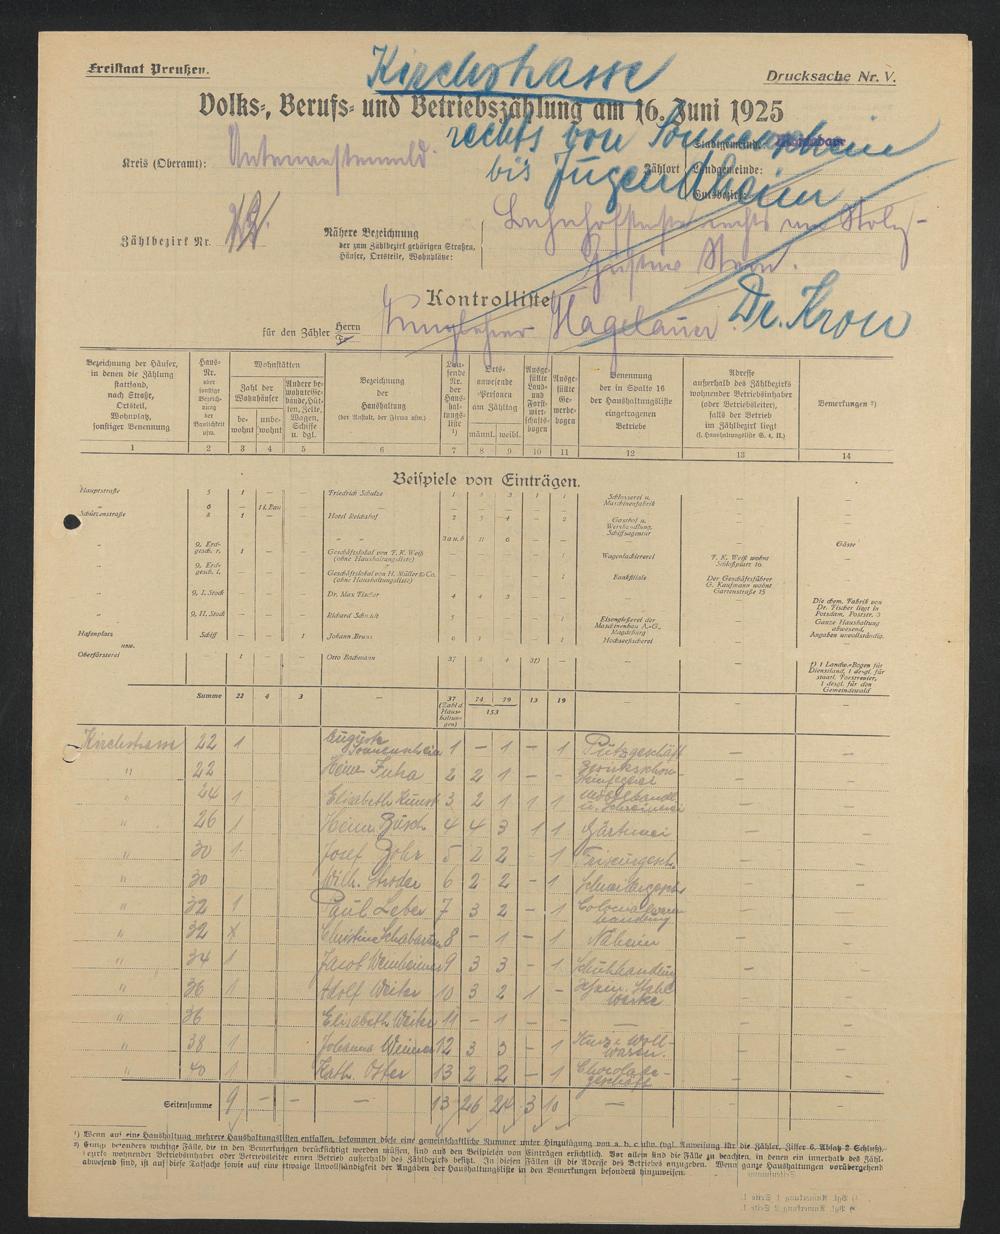 Freistaat Preußen.
Kirchstrasse
Drucksache Nr. V.
Volks-, Berufs- und Betriebszählung am 16. Juni 1925
rechts von Sonnenschein
bis Jugendheim
Kreis (Oberamt): Unterwesterwald.
Zählort
Stadtgemeinde:
Landgemeinde:
Gutsbezirk:
Zählbezirk Nr.
Nähere Bezeichnung
der zum Zählbezirk gehörigen Straßen,
Häuser, Ortsteile, Wohnplätze:
Bahnhofstraße rechts von Stolz-
Gustav Stern.
Kontrolliste
für den Zähler Herrn
Hagelauer
Dr. Kron
Bezeichnung der Häuser, in denen die Zählung stattfand, nach Straße, Ortsteil, Wohnplatz, sonstiger Benennung
Haus-Nr. oder sonstige Bezeichnung der Baulichkeit usw.
Wohnstätten
Zahl der Wohnhäuser
bewohnt
unbewohnt
Andere bewohnte Gebäude, Hütten, Zelte, Wagen, Schiffe u. dgl.
Bezeichnung der Haushaltung (der Anstalt, der Firma usw.)
Laufende Nr. der Haushaltungsliste ¹)
Ortsanwesende Personen am Zähltag
männl. weibl.
Ausgefüllte Land- und Forstwirtschaftsbogen
Ausgefüllte Gewerbebogen
Benennung der in Spalte 16 der Haushaltungsliste eingetragenen Betriebe
Adresse außerhalb des Zählbezirks wohnender Betriebsinhaber (oder Betriebsleiter), falls der Betrieb im Zählbezirk liegt (s. Haushaltungsliste S. 4, II.)
Bemerkungen ²)
1 2 3 4 5 6 7 8 9 10 11 12 13 14
Beispiele von Einträgen.
Hauptstraße 5 1 — — Friedrich Schulze 1 3 3 1 1 Schlosserei u. Maschinenfabrik — —
„ 6 — 1 i. Bau — — — — — — — — — —
Schützenstraße 8 1 — — Hotel Reichshof 2 5 4 — 2 Gasthof u. Weinhandlung, Schiffsagentur — —
„ „ „ 3 a u. b 11 6 — — — — Gäste
„ 9, Erdgesch. r. 1 — — Geschäftslokal von F. K. Weiß (ohne Haushaltungsliste) — — — — 1 Wagenlackiererei F. K. Weiß wohnt Schloßplatz 16 —
„ 9, Erdgesch. l. — — — Geschäftslokal von H. Müller & Co. (ohne Haushaltungsliste) — — — — 1 Bankfiliale Der Geschäftsführer G. Kaufmann wohnt Gartenstraße 15 —
„ 9, I. Stock — — — Dr. Max Fischer 4 4 3 — — — — Die chem. Fabrik von Dr. Fischer liegt in Potsdam, Poststr. 3
„ 9, II. Stock — — — Richard Schmidt 5 — — — 1 Eisengießerei der Maschinenbau A.-G., Magdeburg — Ganze Haushaltung abwesend, Angaben unvollständig.
Hafenplatz Schiff — — 1 Johann Bruns 6 1 — — 1 Hochseefischerei — —
usw.
Oberförsterei 1 — — Otto Bachmann 37 3 4 3†) — — — †) 1 Landw.-Bogen für Dienstland, 1 desgl. für staatl. Forstrevier, 1 desgl. für den Gemeindewald
Summe 22 4 3 — 37 (Zahl d. Haushaltungen) 74 79 13 19
153
Kirchstrasse 22 1 Auguste Sonnenschein 1 — 1 — 1 Putzgeschäft — —
„ 22 Heinr. Fuha 2 2 1 — — —
„ 24 1 Elisabeth Kunst 3 2 1 1 1 Möbelhandl. u. Schreinerei — —
„ 26 1 Heinr. Büsch 4 4 3 1 1 Gärtnerei — —
„ 30 1 Josef Bohr 5 2 2 - 1 Friseurgesch. — —
„ 30 Wilh. Stroder 6 2 2 - 1 — —
„ 32 1 Paul Leber 7 3 2 — 1 Colonialwarenhandlung — —
„ 32 x 8 — 1 — 1 Näherin — —
„ 34 1 Jacob Weinheimer 9 3 3 — 1 Schuhhandlung — —
„ 36 1 Adolf Weiter 10 3 2 1 — — —
„ 36 Elisabeth Weiter 11 — 1 — — — —
„ 38 1 Johanna Weimer 12 3 3 — 1 Kurz- u. Wollwaren. — —
„ 40 1 Kath. Oster 13 2 2 — 1 Chocoladegeschäft — —
Seitensumme 9 — — — 13 26 24 3 10 — — —
¹) Wenn auf eine Haushaltung mehrere Haushaltungslisten entfallen, bekommen diese eine gemeinschaftliche Nummer unter Hinzufügung von a, b, c usw. (vgl. Anweisung für die Zähler, Ziffer 6, Absatz 2 Schluß).
²) Einige besonders wichtige Fälle, die in den Bemerkungen berücksichtigt werden müssen, sind aus den Beispielen von Einträgen ersichtlich. Vor allem sind die Fälle zu beachten, in denen ein innerhalb des Zählbezirks wohnender Betriebsinhaber oder Betriebsleiter einen Betrieb außerhalb des Zählbezirks besitzt. In diesen Fällen ist die Adresse des Betriebes anzugeben. Wenn ganze Haushaltungen vorübergehend abwesend sind, ist auf diese Tatsache sowie auf eine etwaige Unvollständigkeit der Angaben der Haushaltungsliste in den Bemerkungen besonders hinzuweisen.